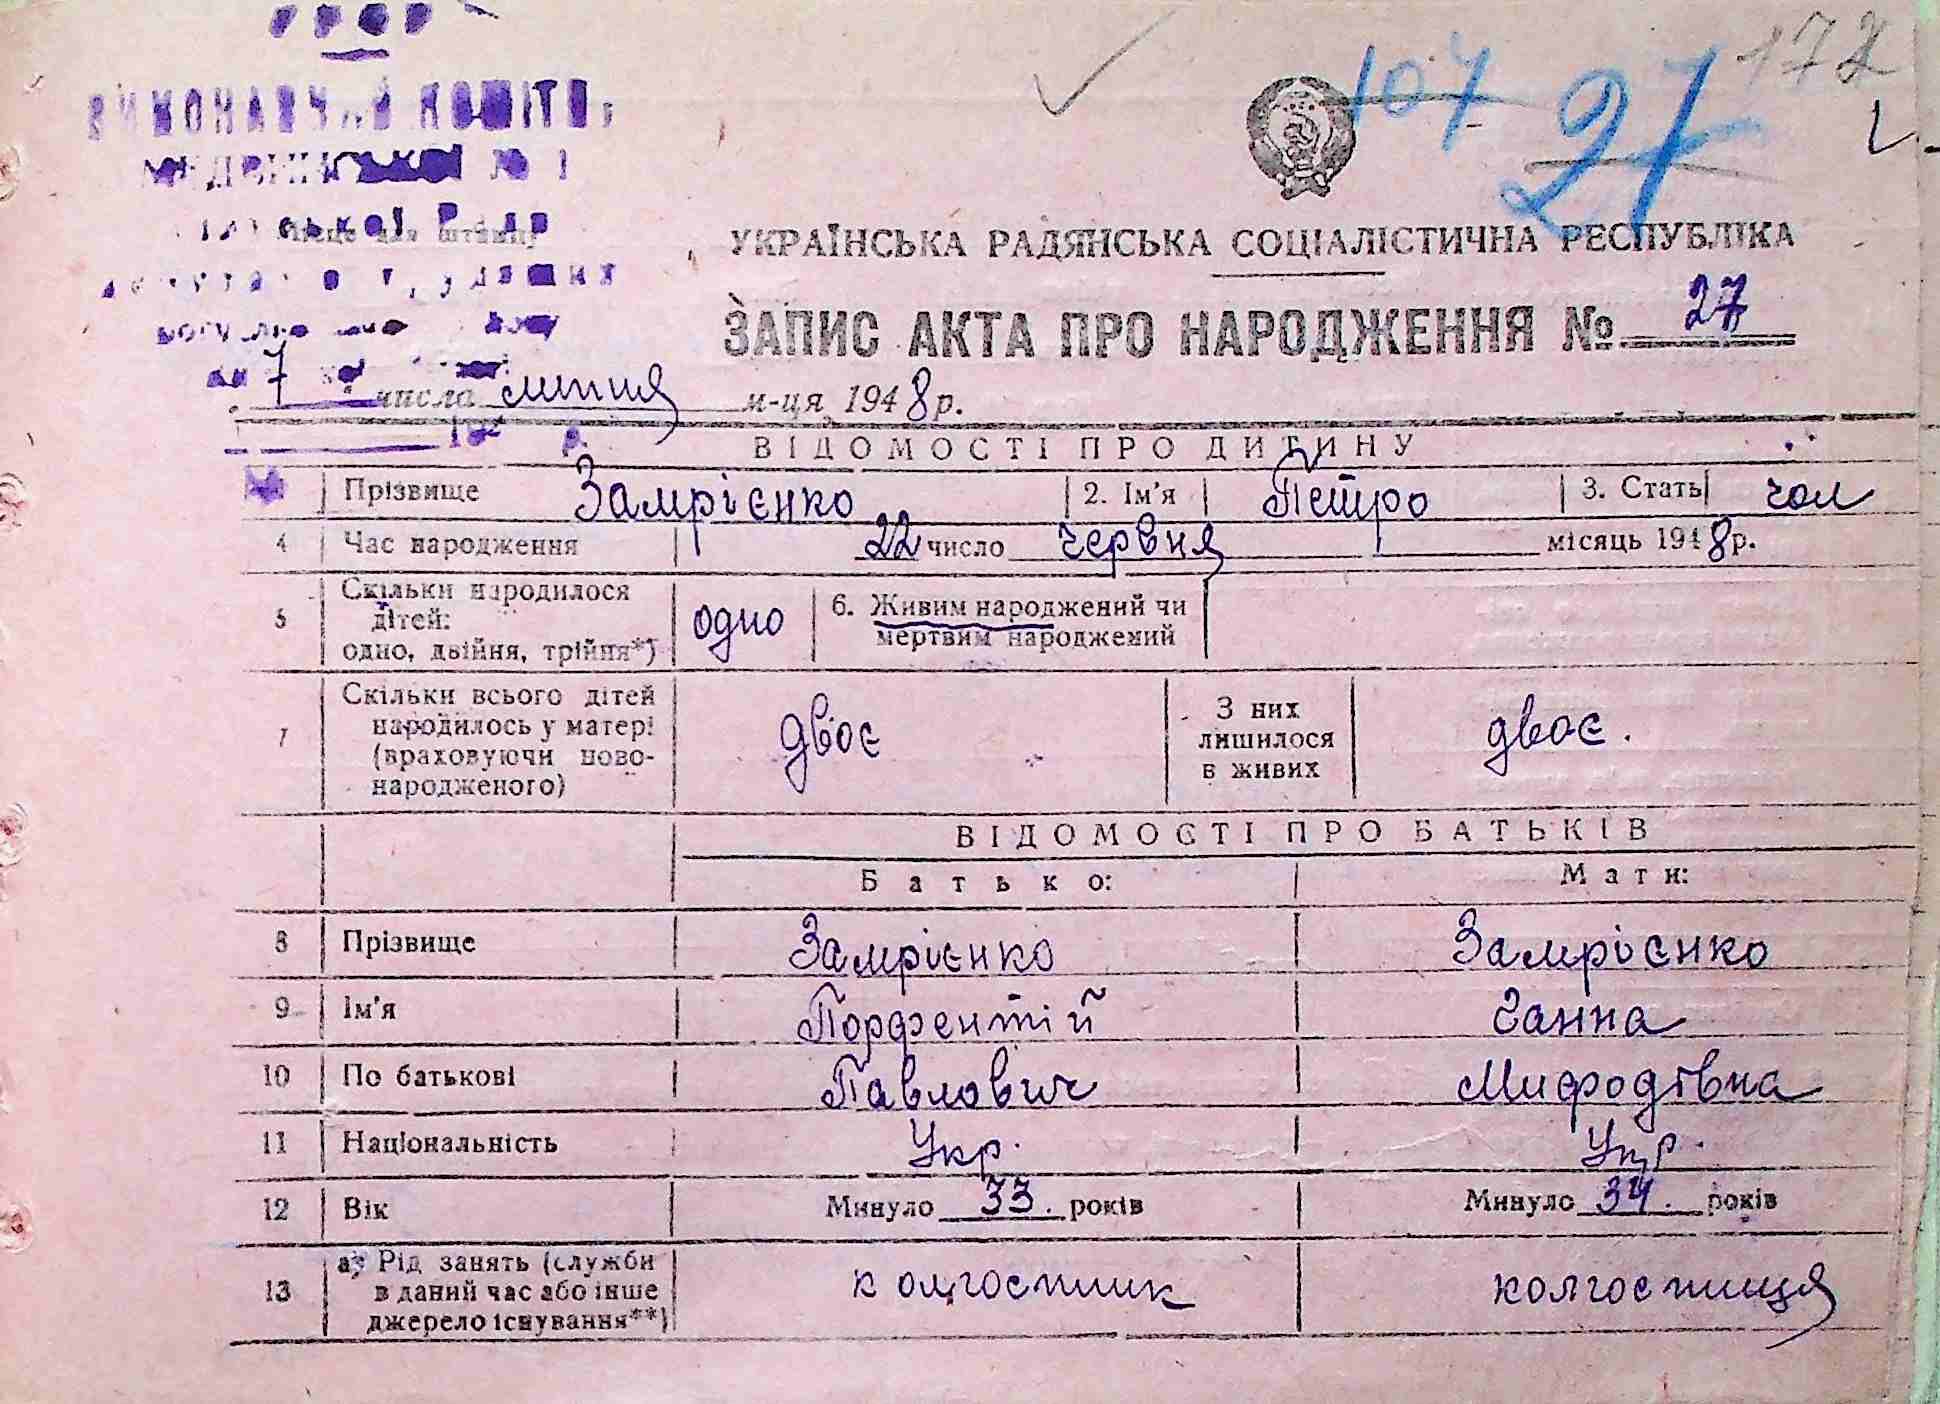 УРСР
ВИКОНАВЧИЙ КОМІТЕТ
№ 1
місце для штампу
107
27
172
УКРАЇНСЬКА РАДЯНСЬКА СОЦІАЛІСТИЧНА РЕСПУБЛІКА
ЗАПИС АКТА ПРО НАРОДЖЕННЯ № 27
7 числа липня м-ця 1948 р.
ВІДОМОСТІ ПРО ДИТИНУ
Прізвище Замрієнко 2. Ім'я Петро 3. Стать чол
4 Час народження 22 число червня місяць 1948 р.
5 Скільки народилося дітей: одно, двійня, трійня*) одно 6. Живим народжений чи мертвим народжений
7 Скільки всього дітей народилось у матері (враховуючи ново-народженого) двоє З них лишилося в живих двоє.
ВІДОМОСТІ ПРО БАТЬКІВ
Батько: Мати:
8 Прізвище Замрієнко Замрієнко
9 Ім'я Порфентій Ганна
10 По батькові Павлович Мифодівна
11 Національність Укр. Укр.
12 Вік Минуло 33. років Минуло 34. років
13 а) Рід занять (служби в даний час або інше джерело існування**) колгоспник колгоспниця